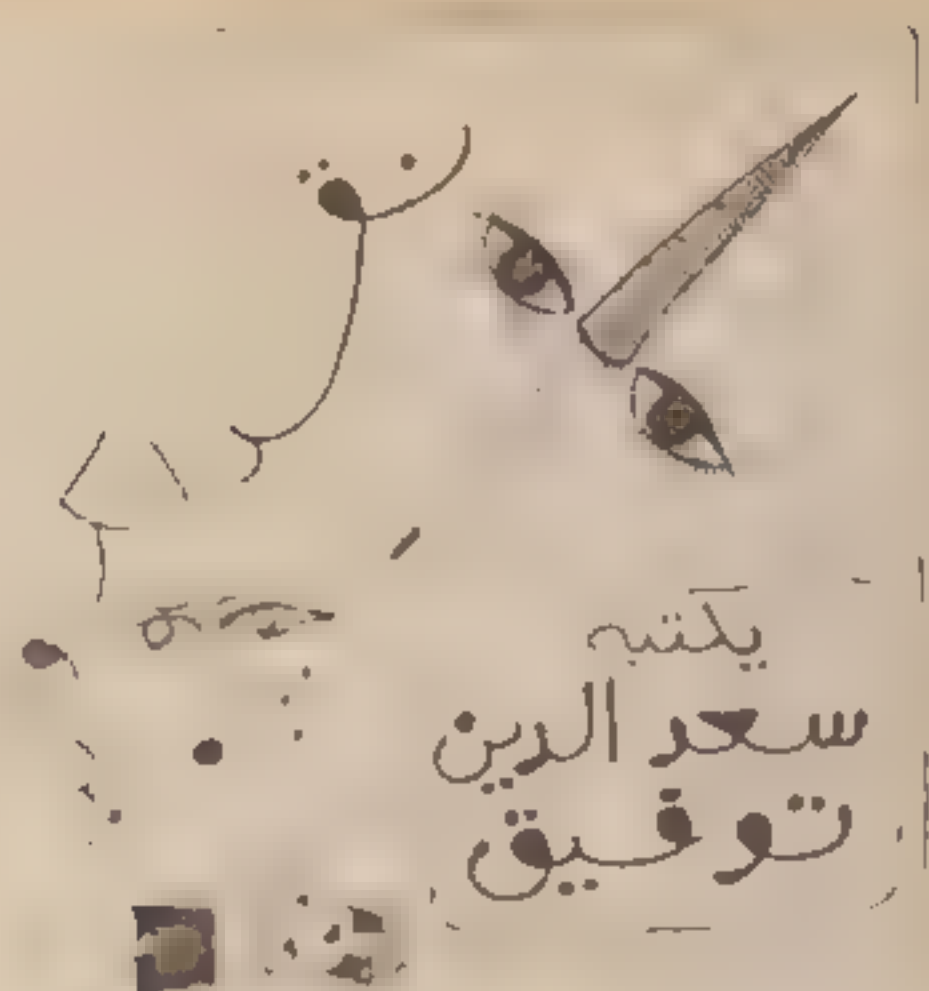 يكتبه
سعد الدين
توفيق